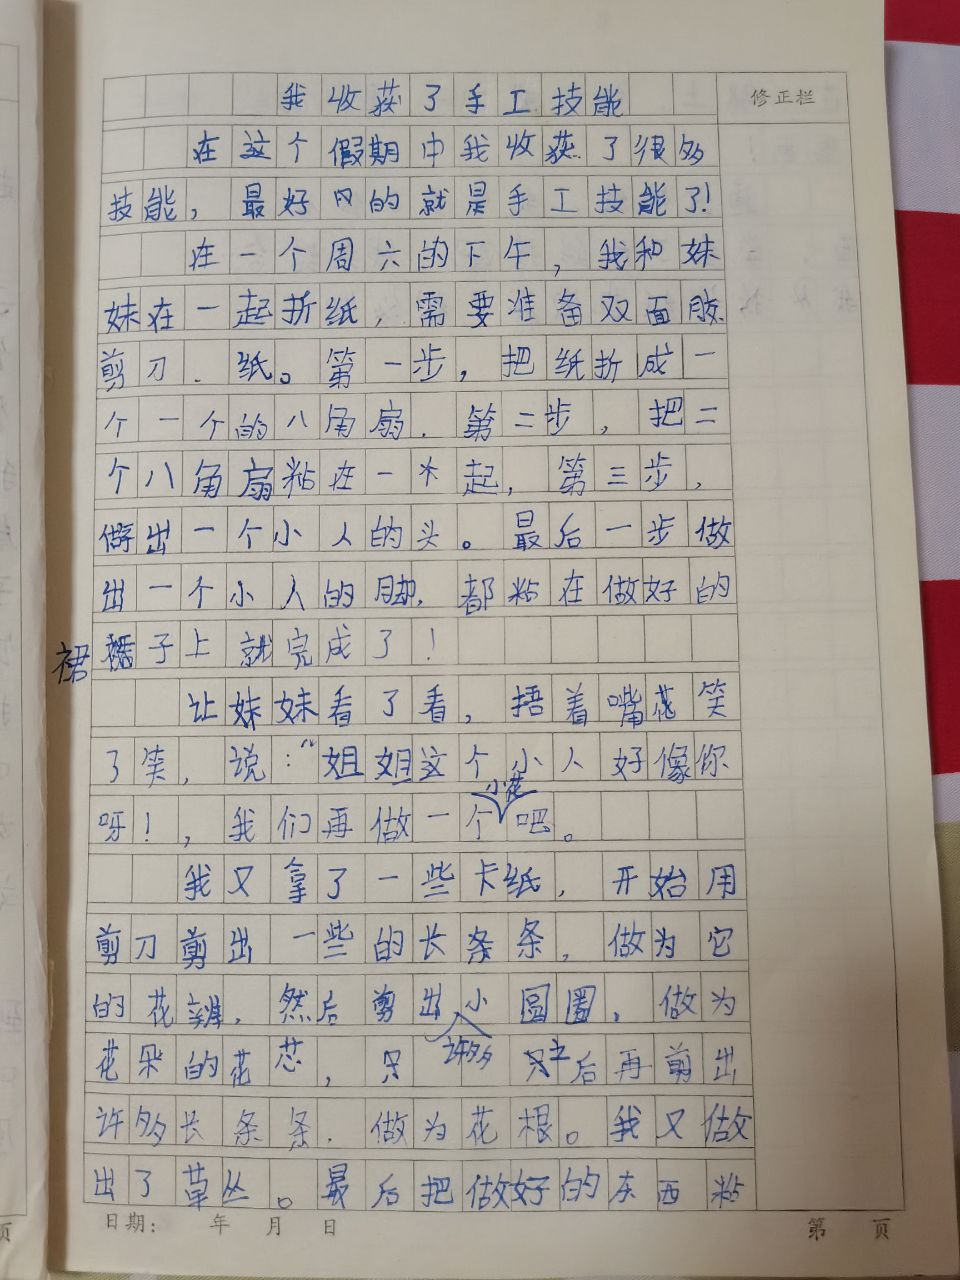 我收获了手工技能
修正栏
在这个假期中我收获了很多
技能，最好的就是手工技能了！
在一个周六的下午，我和妹
妹在一起折纸，需要准备双面胶
剪刀．纸。第一步，把纸折成一
个一个的八角扇．第二步，把二
个八角扇粘在一起，第三步，
做出一个小人的头。最后一步做
出一个小人的脚，都粘在做好的
裙子上就完成了！
让妹妹看了看，捂着嘴花笑
了笑，说：“姐姐这个小人好像你
呀！，我们再做一个小花吧。
我又拿了一些卡纸，开始用
剪刀剪出一些的长条条，做为它
的花辨．然后剪出许多小圆圈，做为
花朵的花芯，之后再剪出
许多长条条．做为花根。我又做
出了草丛。最后把做好的东西粘
日期： 年 月 日 第 页